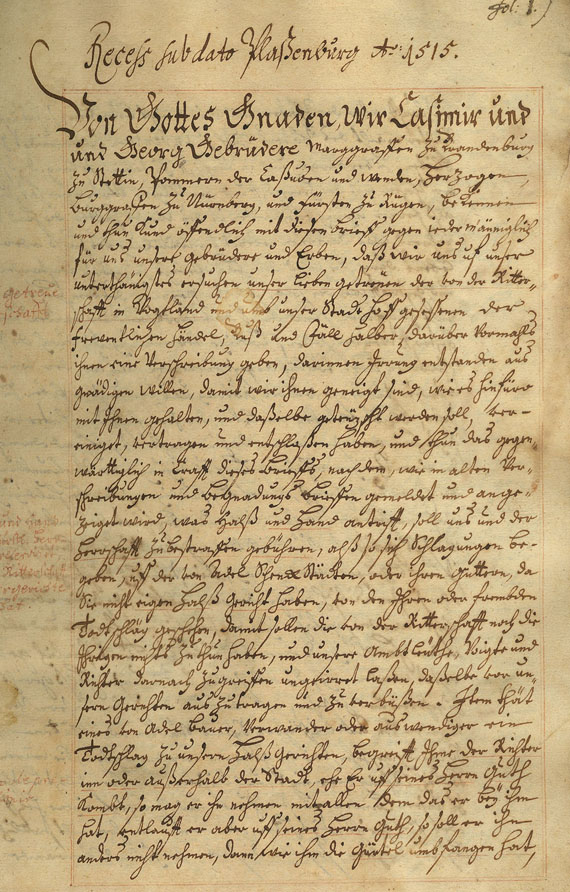 Fol: 1.)
Recess sub dato Plaßenburg Ao: 1515.
Von Gottes Gnaden, Wir Casimir und
und Georg Gebrüdere Marggraffen zu Brandenburg
zu Stettin, Pommern der Caßuben und Wenden, Herzogen
Burggraffen zu Nürnberg, und Fürsten zu Rügen, bekennen
und thun kund öffendlich mit diesen brieff gegen ieder männiglich
für uns unsere gebrüdere und Erben, daß wir uns uf unser
unterthänigstes ersuchen unser lieben getreuen der von der Ritter-
schafft in Vogtland und umb unser Stadt Hoff gesessenen der
freventlichen händel, buß und Fäll halber, darüber Vormahls
ihnen eine Verschreibung geben, darinnen Irrung entstanden aus
gnädigen willen, damit wir ihnen geneigt sind, wie es hinfüro
mit Ihnen gehalten, und daßelbe gebüßt werden soll, Ver-
einiget, vertragen und entschlaßen haben, und thun das gegen-
wärttiglich in Krafft dieses brieffs, nachdem, wie in alten Ver-
schreibungen und begnadungs brieffen gemeldet und ange-
zeiget wird, was Halß und Hand antrifft, soll uns und der
Herrschafft zu bestraffen gebühren, alß so sich Schlagungen be-
geben, uf der von Adel Stärken, oder ihren Güttern, da
Sie nicht eigen Halß Gericht haben, von den Ihren oder frembden
Todtschlag geschehen, damit sollen die von der Ritterschafft noch die
Ihrigen nichts zu thun haben, und unsere Ambtleüthe, Voigte und
Richter darnach zu greiffen ungeirret laßen, daßelbe vor un-
sern Gerichten aus zu tragen und zu verbüßen. Item thät
eines von Adel baüer, Verwander oder auswendiger ein
Todtschlag zu unsern Halß Gerichten, begreifft Ihne der Richter
inn oder außerhalb der Stadt, ehe Er uf seines Herrn Guth
kombt, so mag er ihn nehmen mit allen dem das er beÿ ihm
hat, entlaufft er aber uff seines Herrn Guth, so soll er ihn
anders nicht nehmen, dann, wie ihn die Gürtel umbfangen hat,